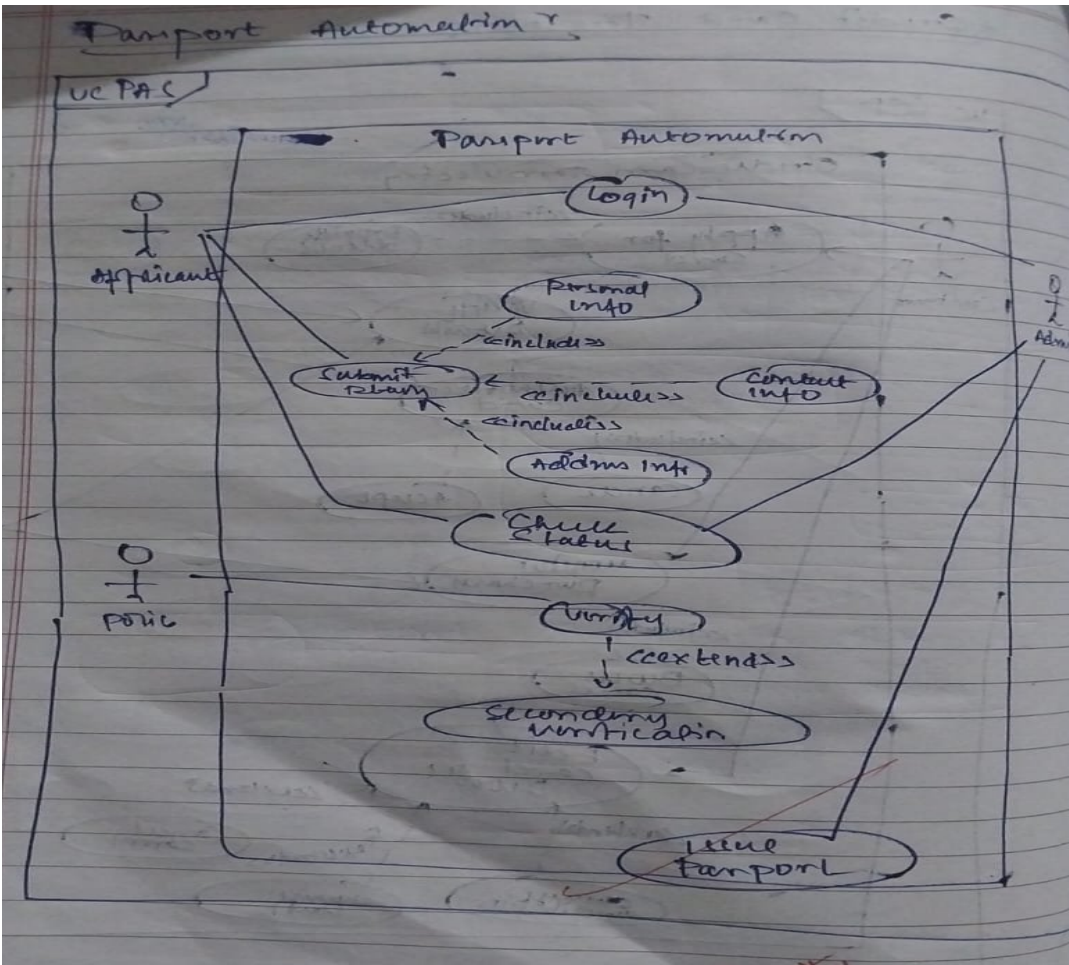 Passport Automation
UC PAS
Passport Automation
Login
Applicant
Personal
info
<<includes>>
Submit
Contact
info
<<includes>>
<<includes>>
Address Info
Check
Status
Police
Verify
<<extend>>
Secondary
Verification
Issue
Passport